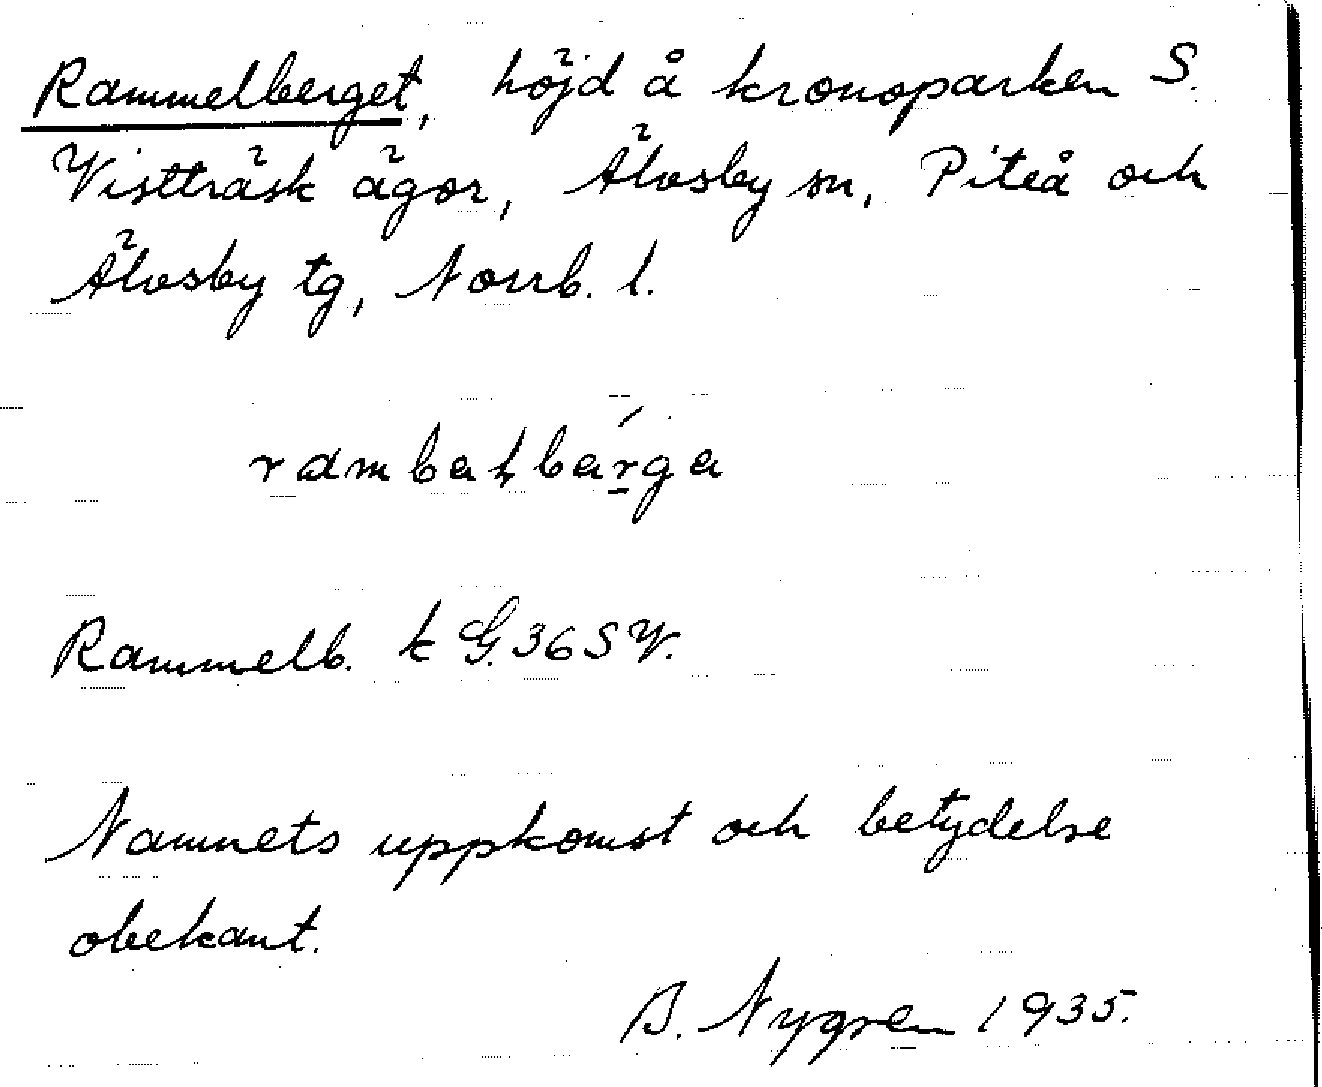 Rammelberget, höjd å kronoparken S.
Vistträsk ägor, Älvsby sn, Piteå och
Älvsby tg, Norrb. l.
rambaɫbárga
Rammelb. k G. 36 S V.
Namnets uppkomst och betydelse
obekant.
B. Nygren 1935.